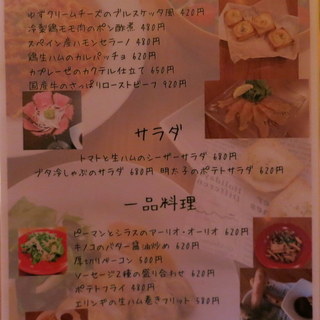 ゆずクリームチーズのブルスケッタ風 420円
冷製鶏モモ肉のポン酢煮 480円
スペイン産ハモンセラーノ 480円
鶏生ハムのカルパッチョ 620円
カプレーゼのカクテル仕立て 650円
国産牛のさっぱりローストビーフ 920円
サラダ
トマトと生ハムのシーザーサラダ 680円
ブタ冷しゃぶのサラダ 680円 明太子のポテトサラダ 620円
一品料理
ピーマンとシラスのアーリオ・オーリオ 620円
キノコのバター醤油炒め 620円
厚切りベーコン 500円
ソーセージ2種の盛り合わせ 620円
ポテトフライ 480円
エリンギの生ハム巻きフリット 580円